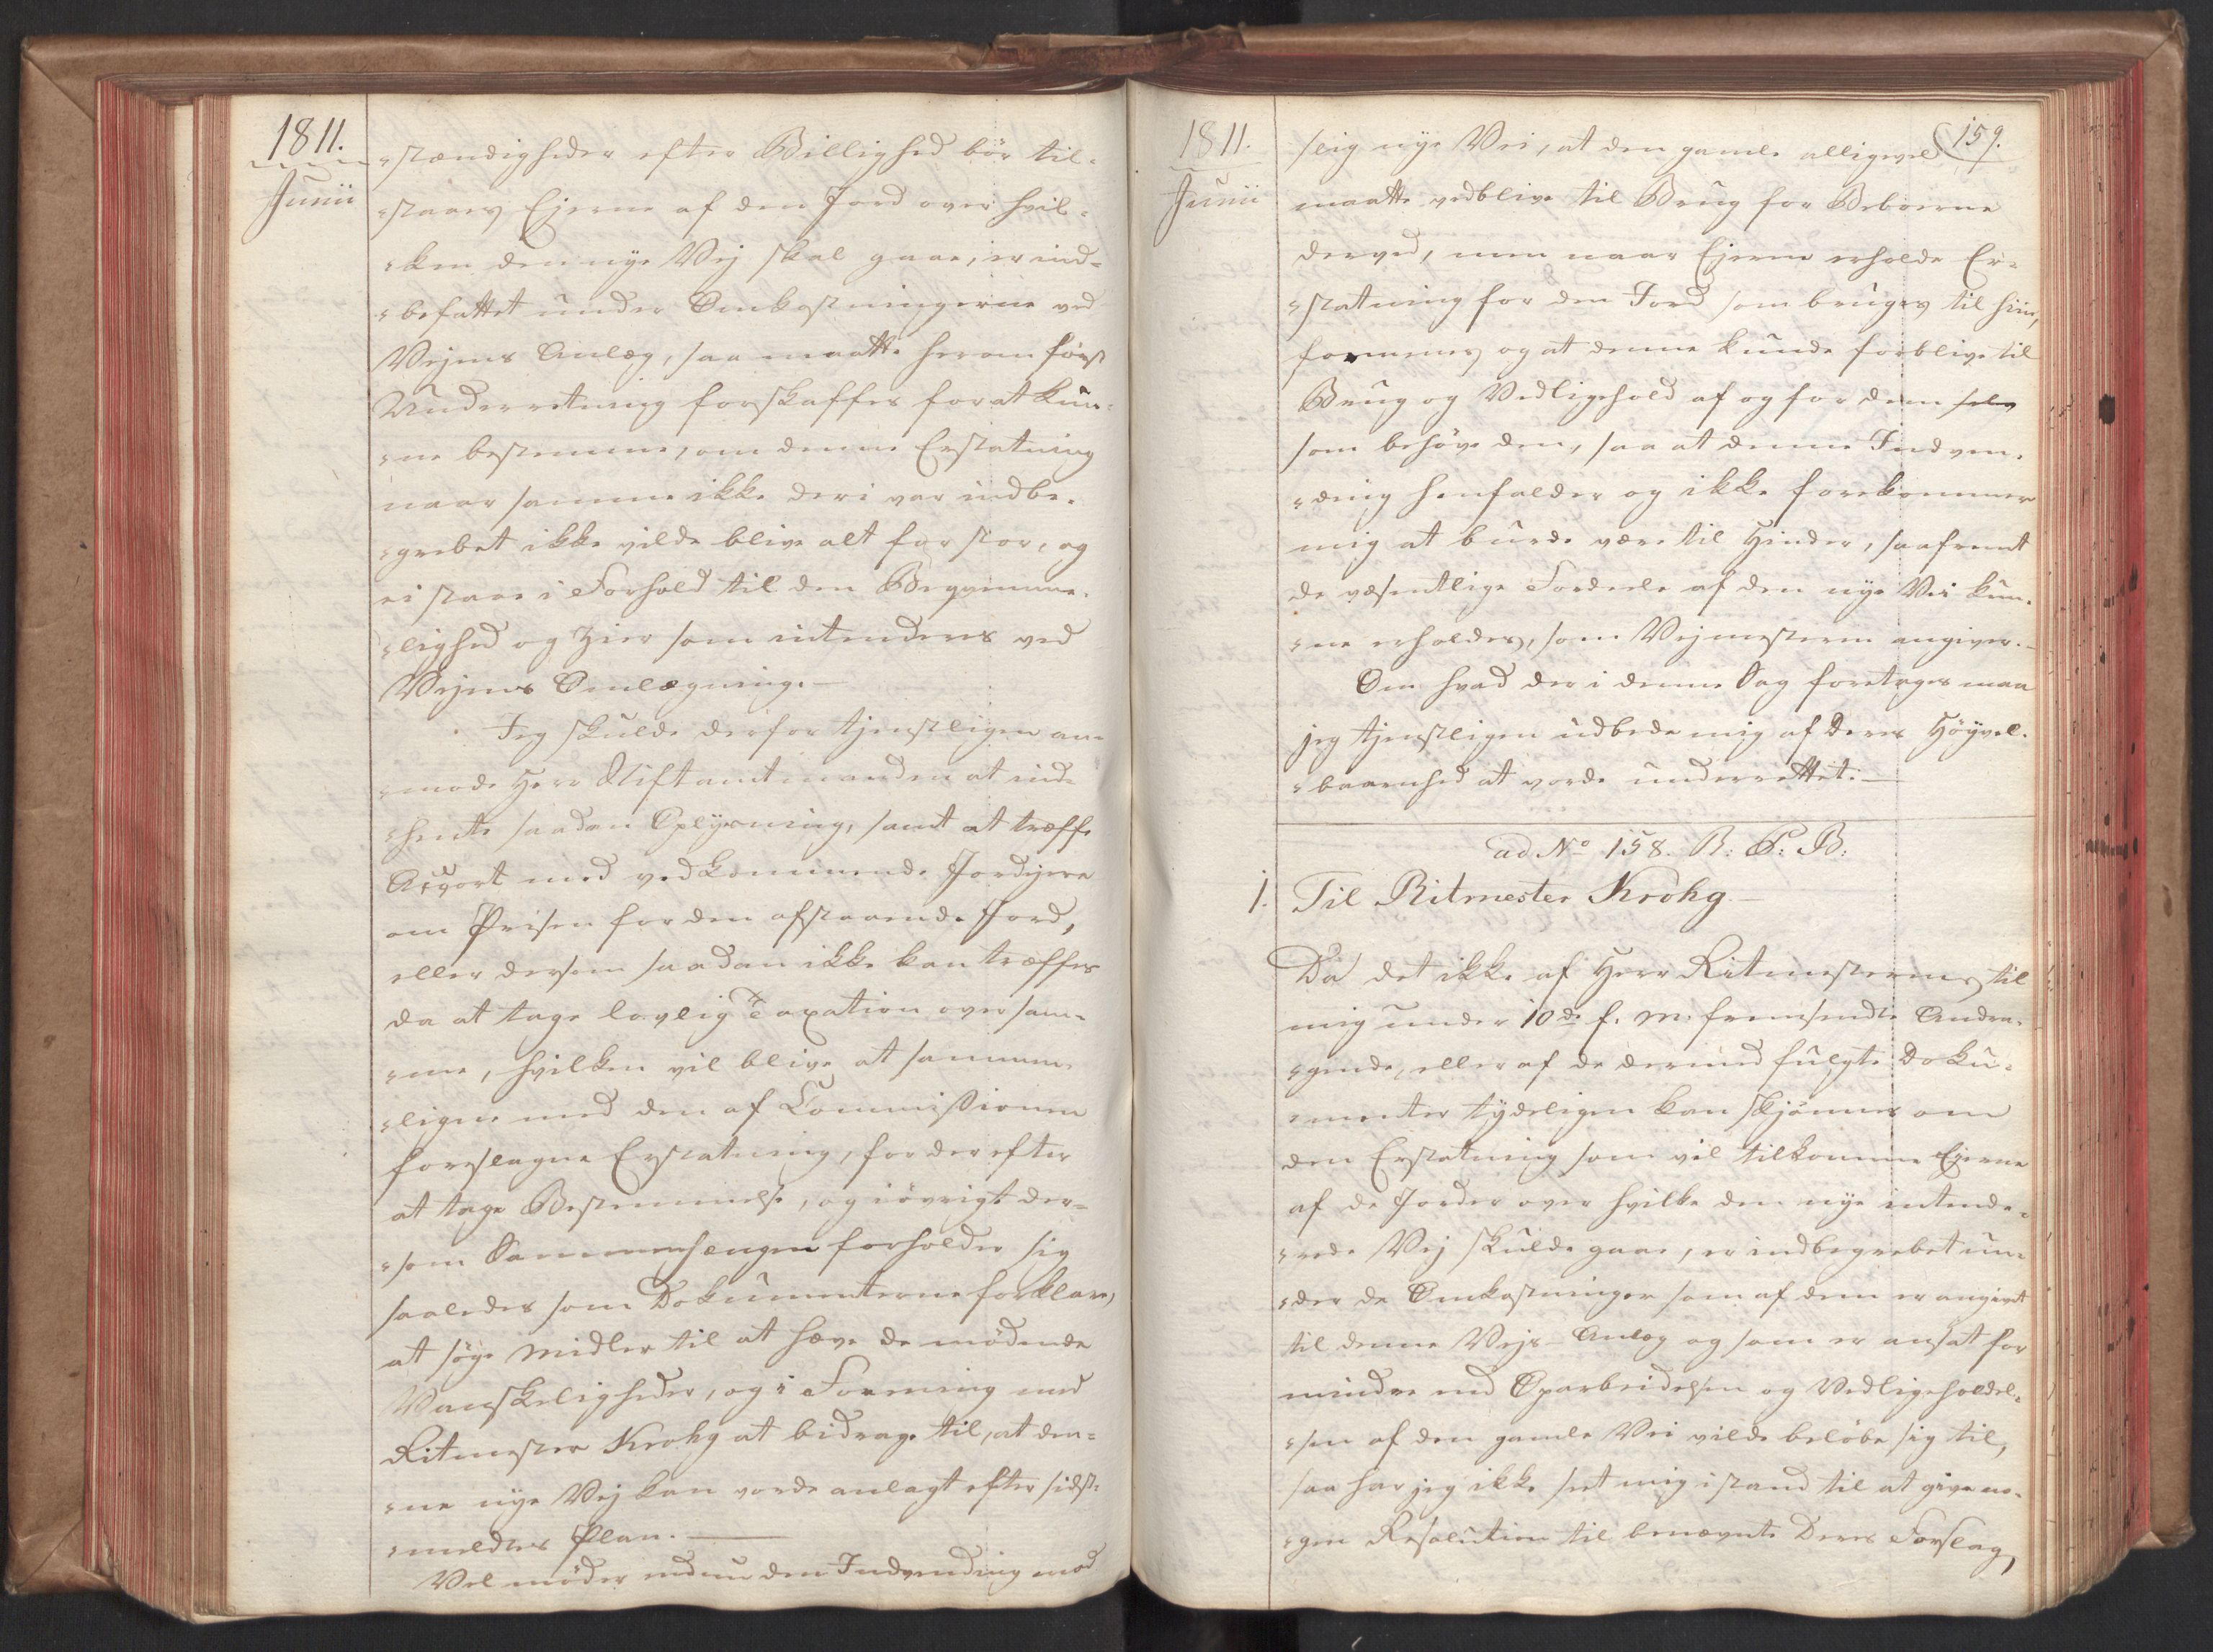 1811.
Junii
"stændigheder efter Billighed bør til-
"staaes Ejerne af den Jord over hvil-
"ken den nye Vej skal gaae, er ind-
"befattet under Omkostningerne ved
Vejens Anlæg, saa maatte herom først
Underretning forskaffes for at kun-
"ne bestemme, om denne Erstatning
naar samme ikke deri var indbe-
"grebet ikke vilde blive alt for stor, og
ei staae i Forhold til den Beqvemme-
"lighed og Zier som intenderes ved
Vejens Omlægning.—
Jeg skulde derfor tjenstligen an-
"mode Herr Stiftamtmanden at ind-
"hente saadan Oplysning, samt at træffe
Accort med vedkommende Jordejere
om Prisen for den afstaaende Jord,
eller dersom saadan ikke kan træffes
da at tage lovlig Taxation over sam-
"me, hvilken vil blive at sammen-
"ligne med den af Commissionen
foreslagne Erstatning, for derefter
at tage Bestemmelse, og iøvrigt der-
"som Sammenhængen forholder sig
saaledes som Dokumenterne forklare,
at søge Midler til at hæve de mødende
Vanskeligheder, og i Forening med
Ritmester Krohg at bidrage til, at den-
"ne nye Vej kan vorde anlagt efter sidst-
"meldtes Plan.—
Vel møder endnu den Indvending mod
1811.
Junii
159.
slig nye Vei, at den gamle alligevel
maatte vedblive til Brug for Beboerne
derved, men naar Ejerne erholde Er-
"statning for den Jord som bruges til hiin,
formenes og at denne kunde forblive til
Brug og Vedligehold af og for dem selv
som behøve den, saa at denne Indven-
"ding henfalder og ikke forekommer
mig at burde være til Hinder, saafremt
de væsentlige Fordeele af den nye Vei kun-
"ne erholdes, som Vejmesteren angiver.—
Om hvad der i denne Sag foretages maa
jeg tjenstligen udbede mig af Deres Høyvel-
"baarenhed at vorde underrettet.—
ad No 158. R: P: B:
1. Til Ritmester Krohg—
Da det ikke af Herr Ritmesterens til
mig under 10de f. M. fremsendte Andra-
"gende, eller af de dermed fulgte Doku-
"menter tydeligen kan skjønnes om
den Erstatning som vil tilkomme Ejerne
af de Jorder over hvilke den nye intende-
"rede Vej skulde gaae, er indbegrebet un-
"der de Omkostninger som af dem er angivet
til denne Vejs-Anlæg og som er ansat for
mindre end Oparbeidelsen og Vedligeholdel-
"sen af den gamle Vei vilde beløbe sig til,
saa har jeg ikke seet mig istand til at give no-
"gen Resolution til benævnte Deres Forslag,